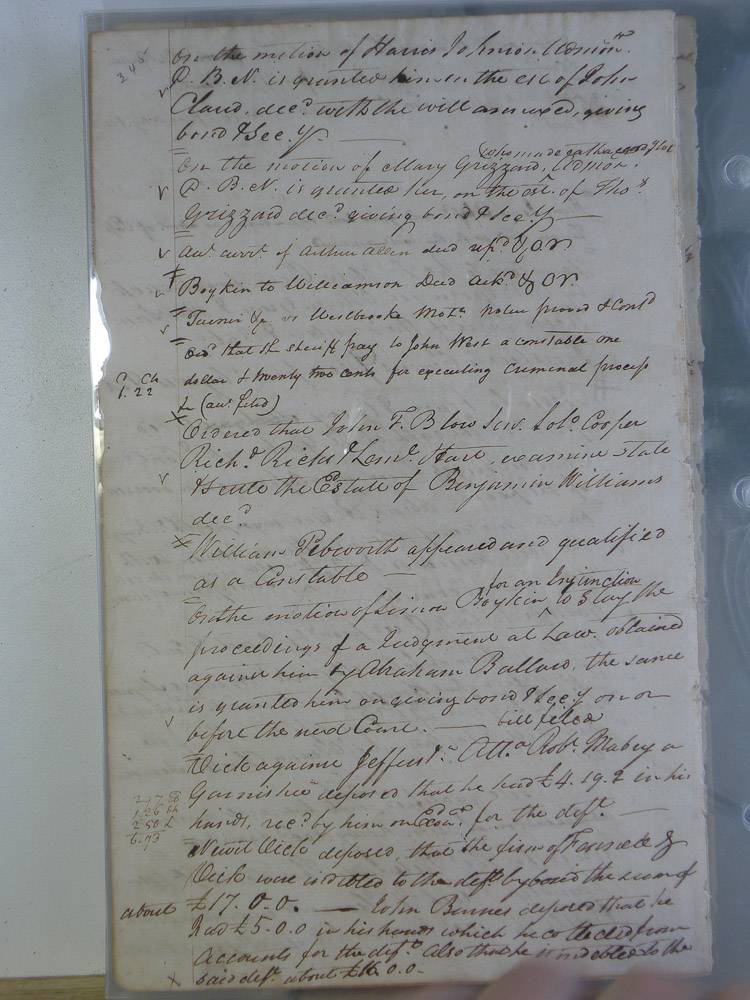 345
On the motion of Harris Johnson. Admōn.
D. B. N. is granted him on the est. of John
Claud, decd. with the will annexed, giving
bond & Secy.
(who made oath accordg to law
On the motion of Mary Grizzard, Admōn.
D. B. N. is granted her, on the est. of Thos.
Grizzard decd. giving bond & Secy
of Arthur Allen decd repd. & OR.
Boykin to Williamson Deed Ackd. & OR.
Turner vs Westbrooke Moto. Notice proved & Contd
Ord. that the sheriff pay to John West a constable one
dollar & twenty two cents for executing Criminal process
1. 22
Ordered that John F. Blow Solo. Cooper
Richd. Ricks & Leml. Hart, examine state
& settle the Estate of Benjamin Williams
decd.
William Pebworth appeared and qualified
as a Constable
for an Injunction
On the motion of Simon Boykin ^ to Stay the
proceedings of a Judgment at Law. obtained
against him by Abraham Ballard, the same
is granted him on giving bond & Secy on or
before the next Court. — bill filed
Vick against Jeffers Atta. Robt. Mabry a
Garnishee deposed that he had £4. 19. 2 in his
hands, recd. by him on for the deft. —
Newit Vick deposed, that the firm of &
Vick were indebted to the deft by bond the sum of
about £17. 0. 0. — John Binnes deposed that he
had £5. 0. 0 in his hands which he collected from
Accounts for the deft. also that he is indebted to the
said deft. about £16. 0. 0 -